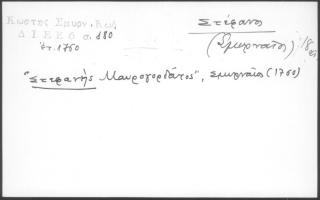 Κωστης Σμυρν. Κωδ.
ΔΙΕΕΘ σ. 180
ἐτ. 1760
Στέφανος
(Σμυρναῖος)
"Στεφανής Μαυρογορδάτος", Σμυρναῖος (1760)